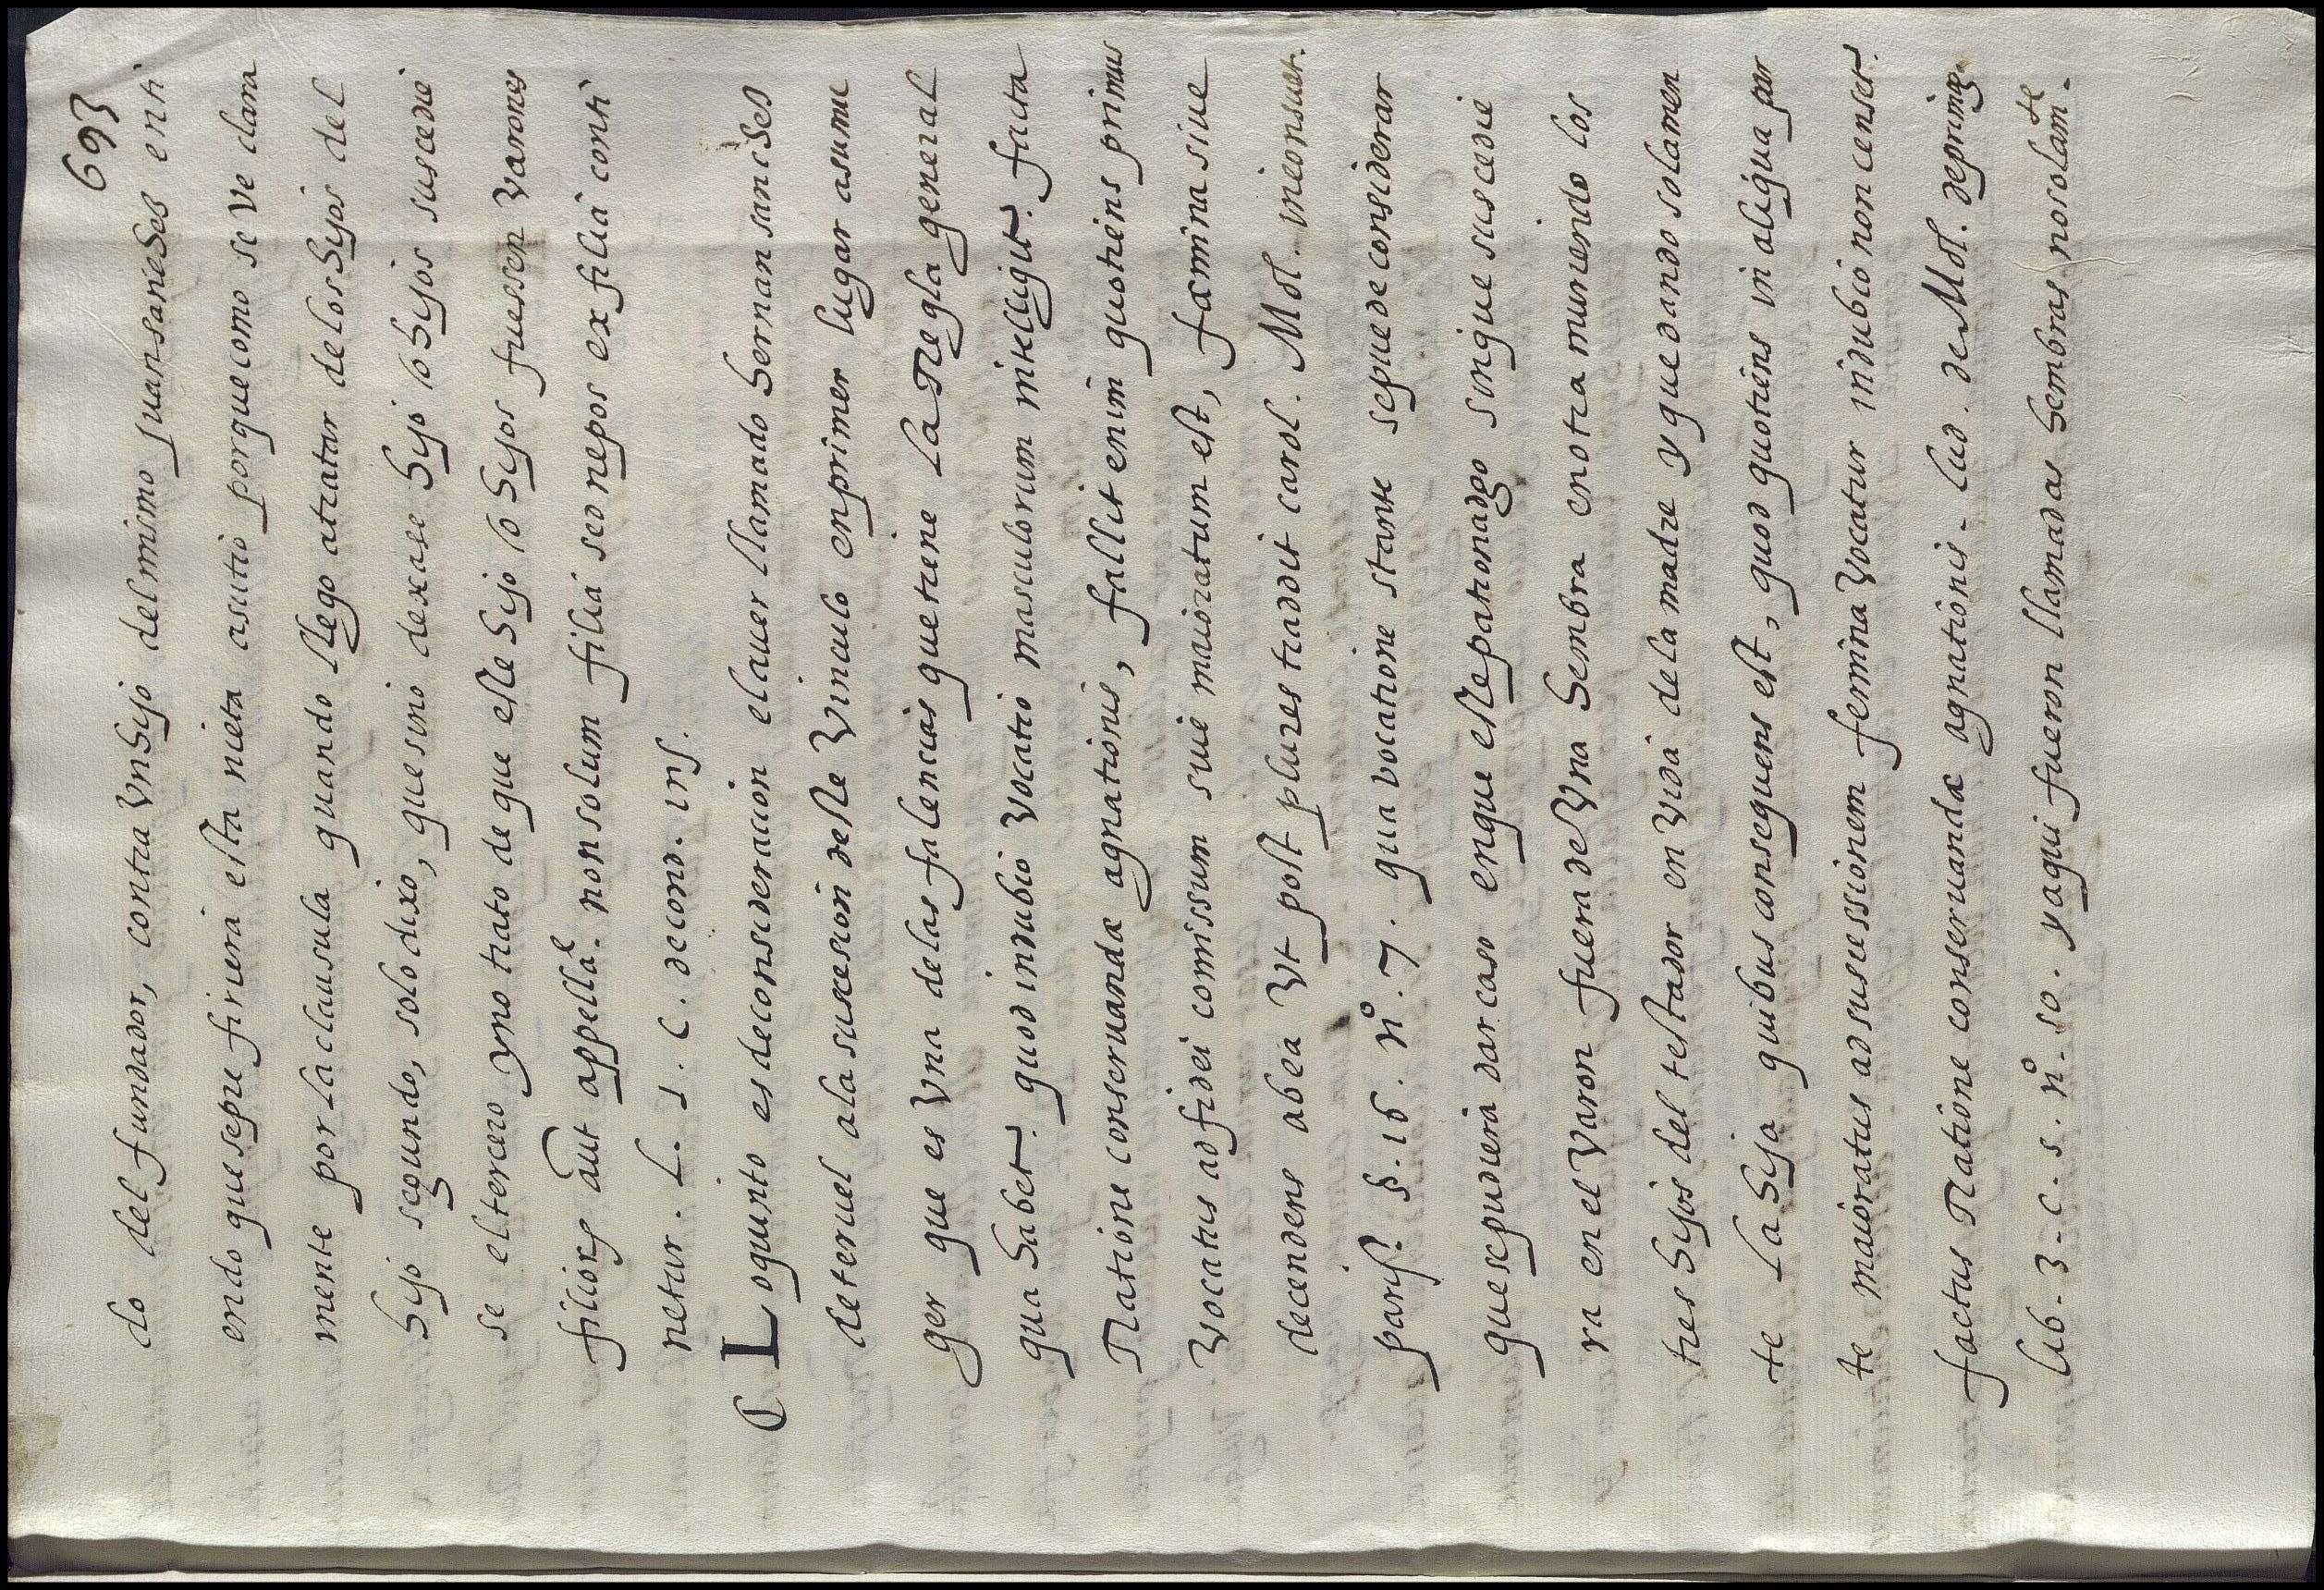 693
do del fundador, contra Vn hijo del mismo Juan sanchez enti
endo que sepre firiera esta nieta asutio porque como se ve clara
mente por la clausula quando llego atratar de los hijos del
hijo segundo, solo dixo, que sino dexase hijo o hijos sucedie
se el tercero y no trato de que este hijo o hijos fuessen varones
filiorũ aũt appellãe. non solum filiã sed nepos ex filiã conti
netur. L. 1. C. de cond. ins.
Lo quinto es de consideracion el aver llamado hernan sanchez
de teruel ala sucesion deste Vinculo en primer lugar asu mu
ger que es Vna de las falencias que tiene la Regla general
qua habet. quod in dubio Vocatio masculorum intelligit. facta
Ratione conseruandæ agnationis, fallit enim quotiens primus
Vocatus ad fidei comissum siue maioratum est, fæmina siue
decendens ab ea Vt post plures tradit carol. Mol. in consuet.
paris. §. 16. nº. 7. qua vocatione stante se puede considerar
que se pudiera dar caso en que este patronadgo sin que sucedie
ra en el Varon fuera de Vna hembra en otra muriendo los
tres hijos del testador en Vida de la madre y quedando solamen
te La hija quibus consequens est, quod quotiens in aliqua par
te maioratus ad successionem femina Vocatur in dubio non censet.
factus Ratione conseruandæ agnationis. Lud. de Mol. de primog.
lib. 3. c. 5. nº. 50. yaqui fueron llamadas hembras no solam.te